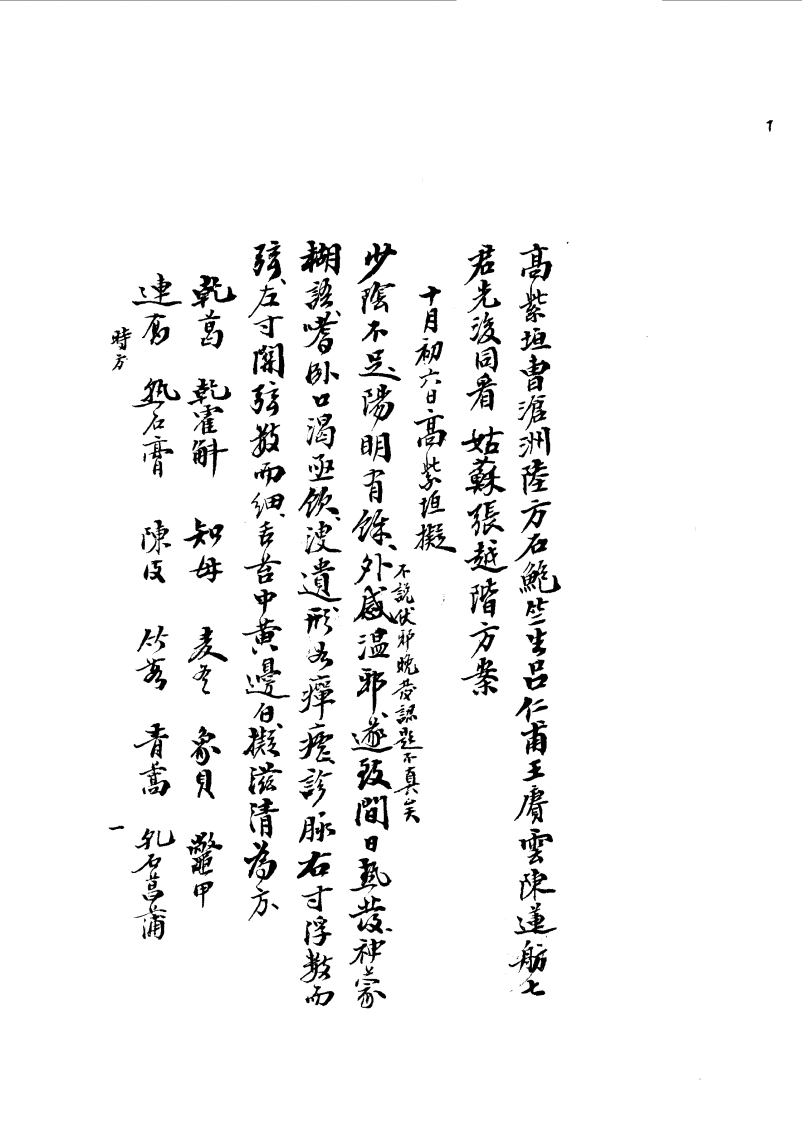 高紫垣曹滄洲陸方石鮑竺生呂仁甫王賡雲陳蓮舫七
君先後同看 姑蘇張越階方案
十月初六日高紫垣擬
不說伏邪晚發認題不真矣
少陰不足陽明有餘外感溫邪遂致間日熱發神蒙
糊語嗜臥口渴亟飲溲遺形如癉瘧診脈右寸浮數而
弦左寸關弦數而細舌苔中黄邊白擬滋清為方
乾葛 乾霍斛 知母 麦冬 象貝 鼈甲
連翹 熟石膏 陳皮 竹茹 青蒿 乳石菖蒲
時方
一